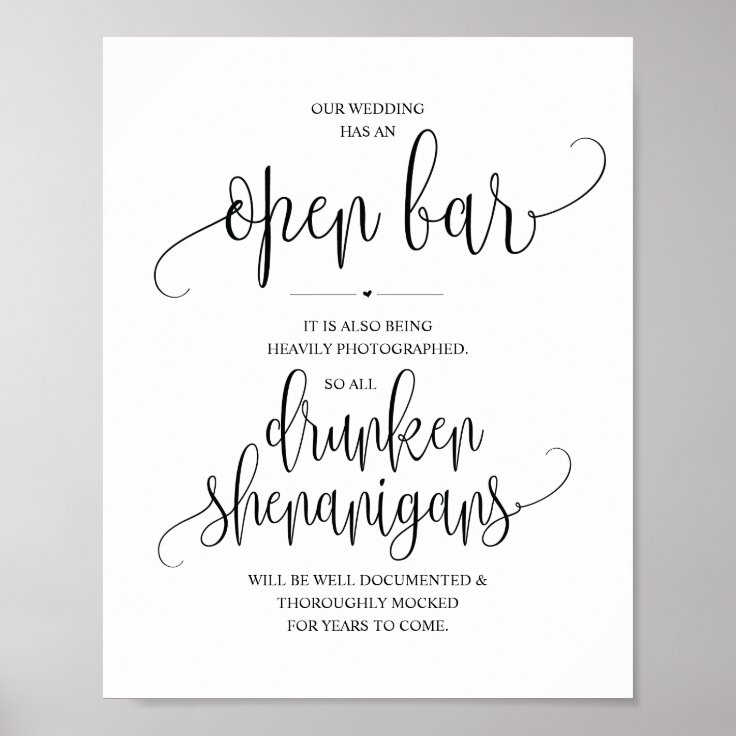 OUR WEDDING
HAS AN
open bar
IT IS ALSO BEING
HEAVILY PHOTOGRAPHED.
SO ALL
drunken
shenanigans
WILL BE WELL DOCUMENTED &
THOROUGHLY MOCKED
FOR YEARS TO COME.